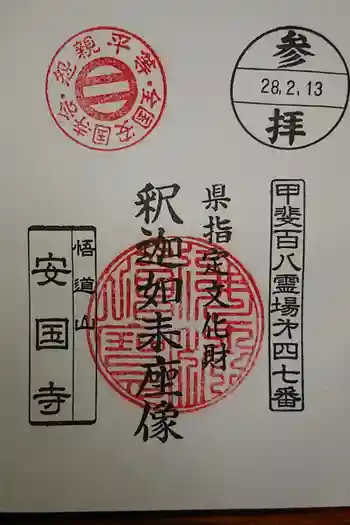 参拝
28.2.13
甲斐百八霊場第四七番
県指定文化財
釈迦如来座像
悟道山
安国寺
怨親平等・全国安国寺会・